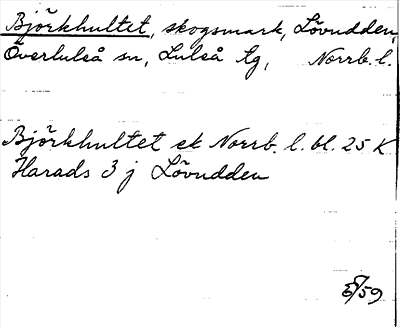 Björkhultet, skogsmark, Lövudden,
Överluleå sn, Luleå tg, Norrb. l.
Björkhultet ek Norrb. l. bl. 25 K
Harads 3 j Lövudden